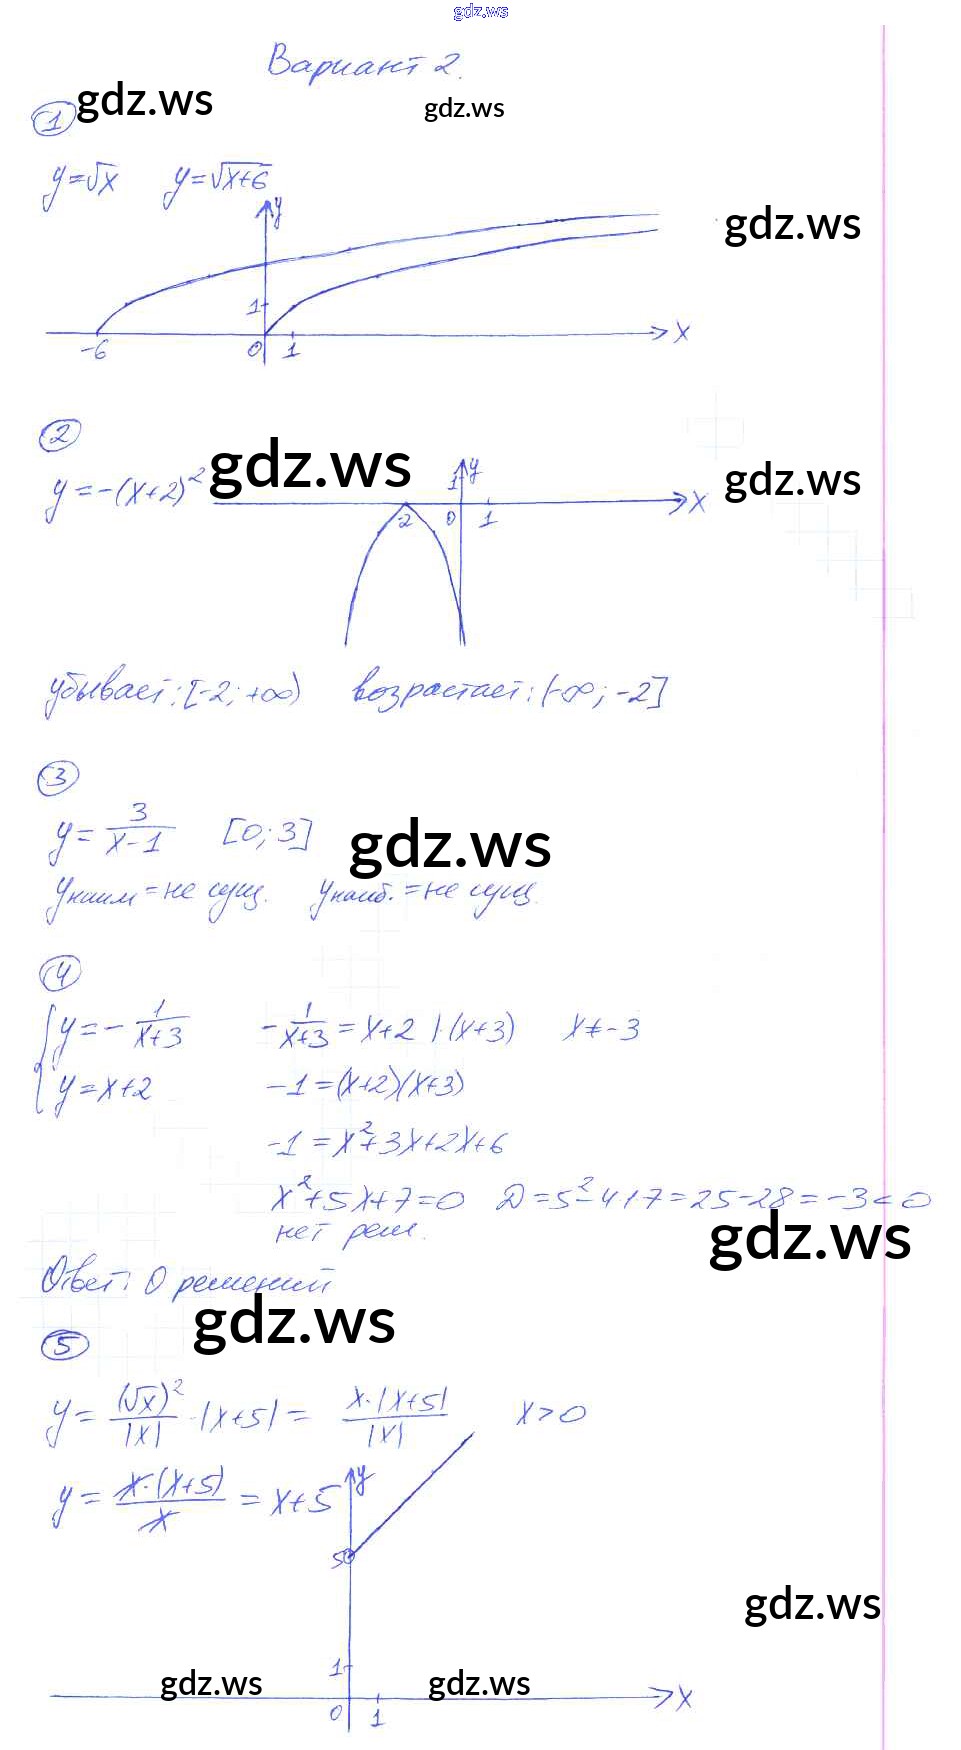 gdz.ws
Вариант 2.
1 gdz.ws gdz.ws
y=√x y=√x+6
y
gdz.ws
1
-6 0 1 x
2
y=-(x+2)² gdz.ws
1 y
gdz.ws
-2 0 1 x
убывает: [-2; +∞) возрастает: (-∞; -2]
3
y= 3/(x-1) [0; 3] gdz.ws
yнаим = не сущ. yнаиб. = не сущ.
4
{ y=- 1/(x+3) - 1/(x+3) = x+2 |·(x+3) x≠-3
y=x+2 -1=(x+2)(x+3)
-1=x²+3x+2x+6
x²+5x+7=0 D=5²-4·1·7=25-28=-3<0
нет реш. gdz.ws
Ответ: 0 решений
gdz.ws
5
y= (√x)²/|x| · |x+5| = x·|x+5|/|x| x>0
y= x·(x+5)/x = x+5 y
5
gdz.ws
1
gdz.ws gdz.ws
0 1 x